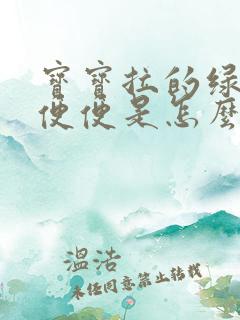 寶寶拉的綠
便便是怎麼
溫洁
未经同意禁止转载